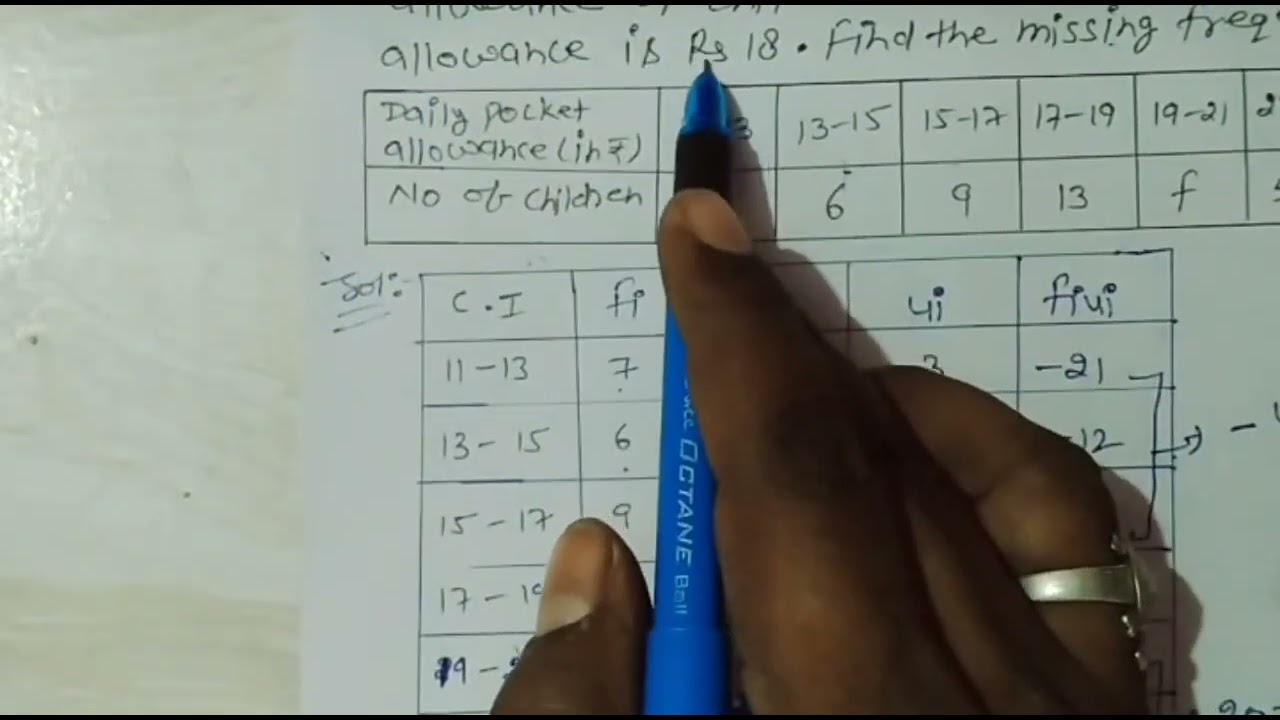 allowance is Rs 18. Find the missing
Daily pocket allowance (in ₹) 13-15 15-17 17-19 19-21
No of children 6 9 13 f
Sol:-
C.I fi ui fiui
11-13 7 3 -21
13-15 6 -12
15-17 9
17-19
19-
OCTANE Ball